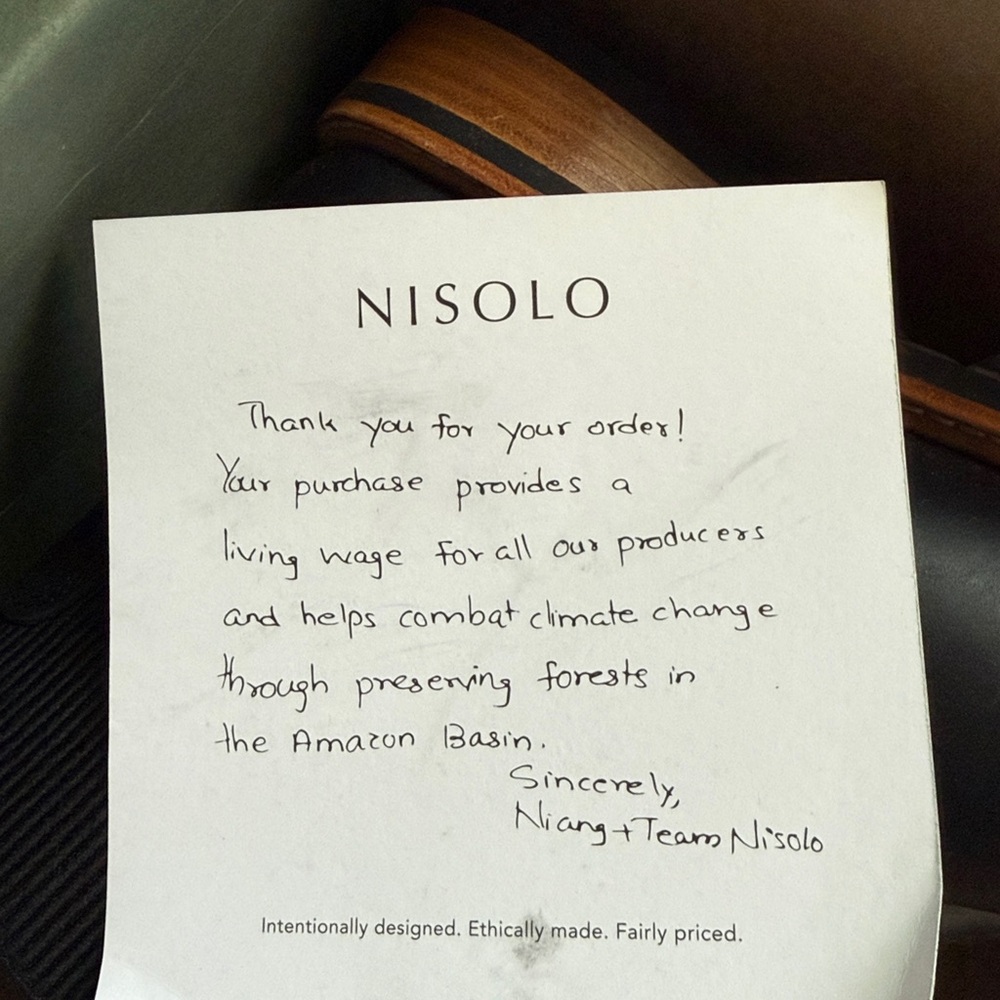 NISOLO
Thank you for your order!
Your purchase provides a
living wage for all our producers
and helps combat climate change
through preserving forests in
the Amazon Basin.
Sincerely,
Niang + Team Nisolo
Intentionally designed. Ethically made. Fairly priced.